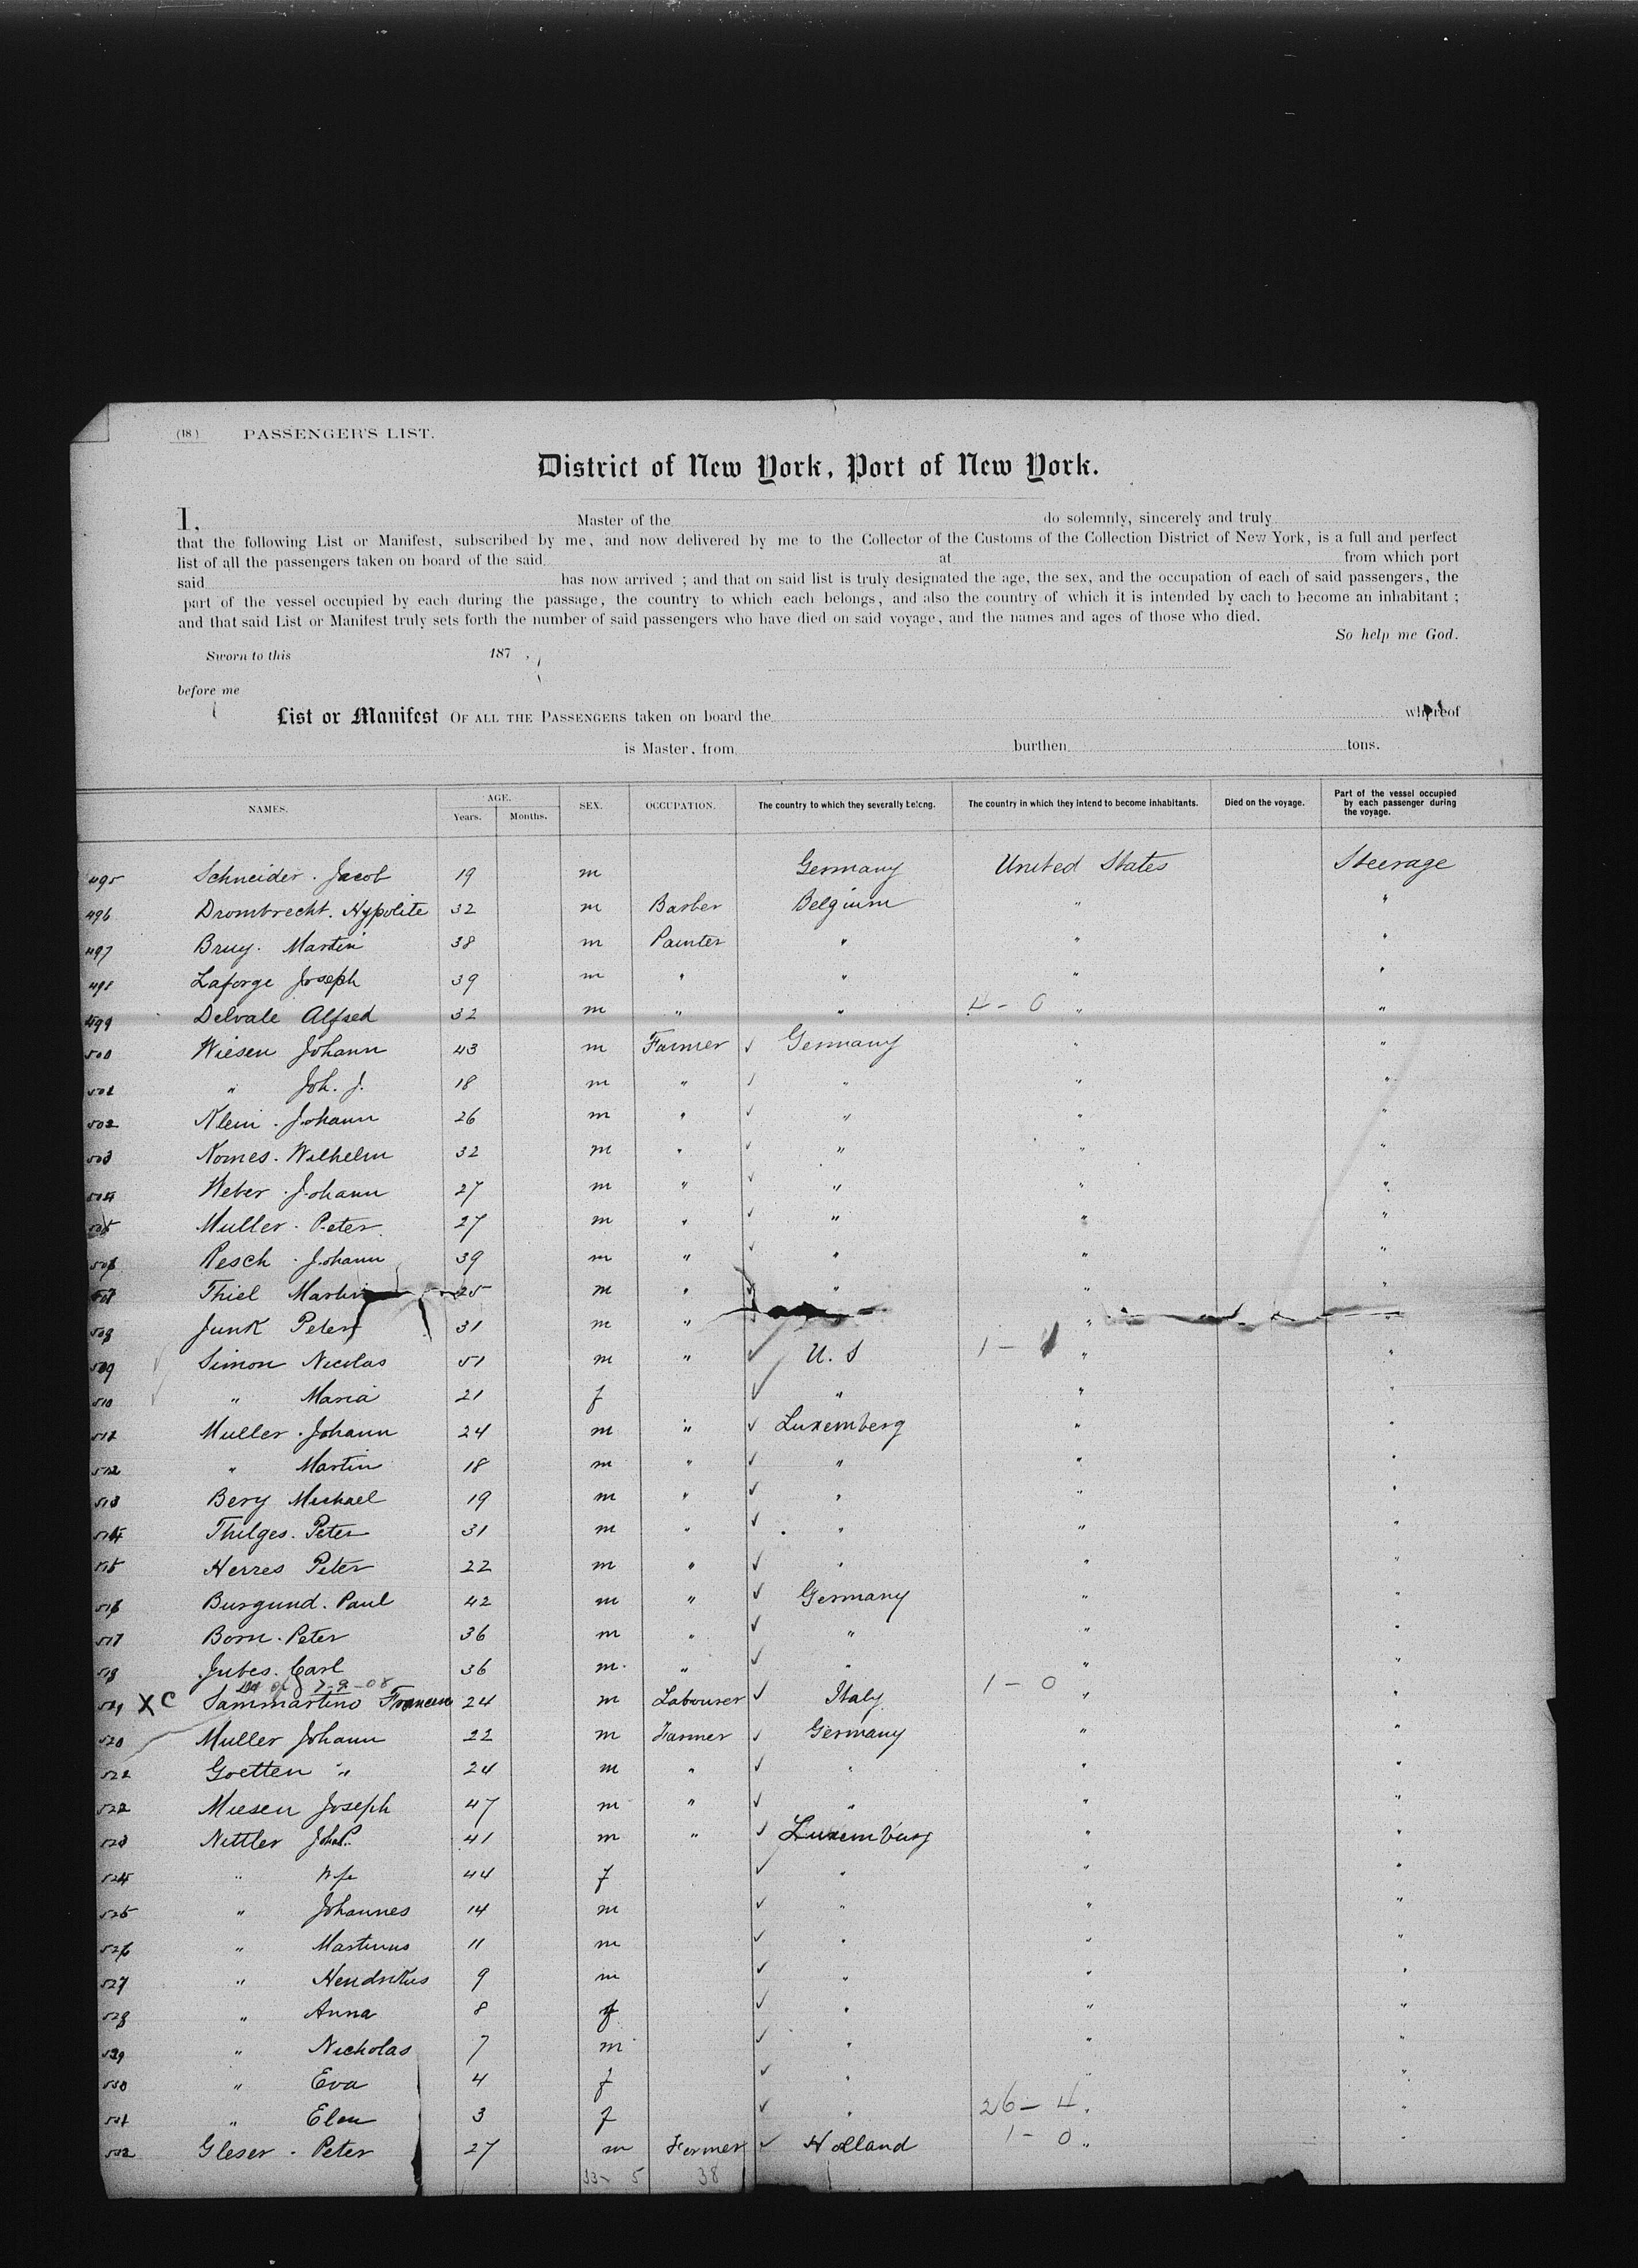 (18) PASSENGER'S LIST.
District of New York, Port of New York.
I, Master of the do solemnly, sincerely and truly
that the following List or Manifest, subscribed by me, and now delivered by me to the Collector of the Customs of the Collection District of New York, is a full and perfect
list of all the passengers taken on board of the said at from which port
said has now arrived ; and that on said list is truly designated the age, the sex, and the occupation of each of said passengers, the
part of the vessel occupied by each during the passage, the country to which each belongs, and also the country of which it is intended by each to become an inhabitant ;
and that said List or Manifest truly sets forth the number of said passengers who have died on said voyage, and the names and ages of those who died.
So help me God.
Sworn to this 187 ,
before me
List or Manifest OF ALL THE PASSENGERS taken on board the whereof
is Master, from burthen tons.
NAMES. AGE. Years. Months. SEX. OCCUPATION. The country to which they severally belong. The country in which they intend to become inhabitants. Died on the voyage. Part of the vessel occupied by each passenger during the voyage.
495 Schneider . Jacob 19 m Germany United States Steerage
496 Drombrecht . Hypolite 32 m Barber Belgium " "
497 Bruy . Martin 38 m Painter " " "
498 Laforge Joseph 39 m " " " "
499 Delvale Alfred 32 m " " 4 - 0 " "
500 Wiesen Johann 43 m Farmer ✓ Germany " "
501 " Joh. J. 18 m " ✓ " " "
502 Klein . Johann 26 m " ✓ " " "
503 Komes . Wilhelm 32 m " ✓ " " "
504 Weber . Johann 27 m " ✓ " " "
505 Muller . Peter 27 m " ✓ " " "
506 Resch . Johann 39 m " ✓ " " "
507 Thiel Martin 25 m " ✓ " " "
508 Junk Peter 31 m " " "
509 Simon Nicolas 51 m " ✓ U. S 1 - " "
510 " Maria 21 f ✓ " " "
511 Muller . Johann 24 m " ✓ Luxemberg " "
512 " Martin 18 m " ✓ " " "
513 Bery Michael 19 m " ✓ " " "
514 Thilges . Peter 31 m " ✓ " " "
515 Herres Peter 22 m " ✓ " " "
516 Burgund . Paul 42 m " ✓ Germany " "
517 Born . Peter 36 m " ✓ " " "
518 Jubes . Carl 36 m " ✓ " " "
7-9-08
519 X C Sammartino 24 m Labourer ✓ Italy 1 - 0 " "
520 Muller Johann 22 m Farmer ✓ Germany " "
521 Goetten " 24 m " ✓ " " "
522 Miesen Joseph 47 m " ✓ " " "
523 Nittler Joh. P. 41 m " ✓ Luxemburg " "
524 " Wife 44 f ✓ " " "
525 " Johannes 14 m ✓ " " "
526 " Martinus 11 m ✓ " " "
527 " Hendrikus 9 m ✓ " " "
528 " Anna 8 f ✓ " " "
529 " Nicholas 7 m ✓ " " "
530 " Eva 4 f ✓ " " "
531 " Elen 3 f ✓ " 26 - 4 " "
532 Gleser . Peter 27 m Farmer ✓ Holland 1 - 0 " "
33 - 5 38